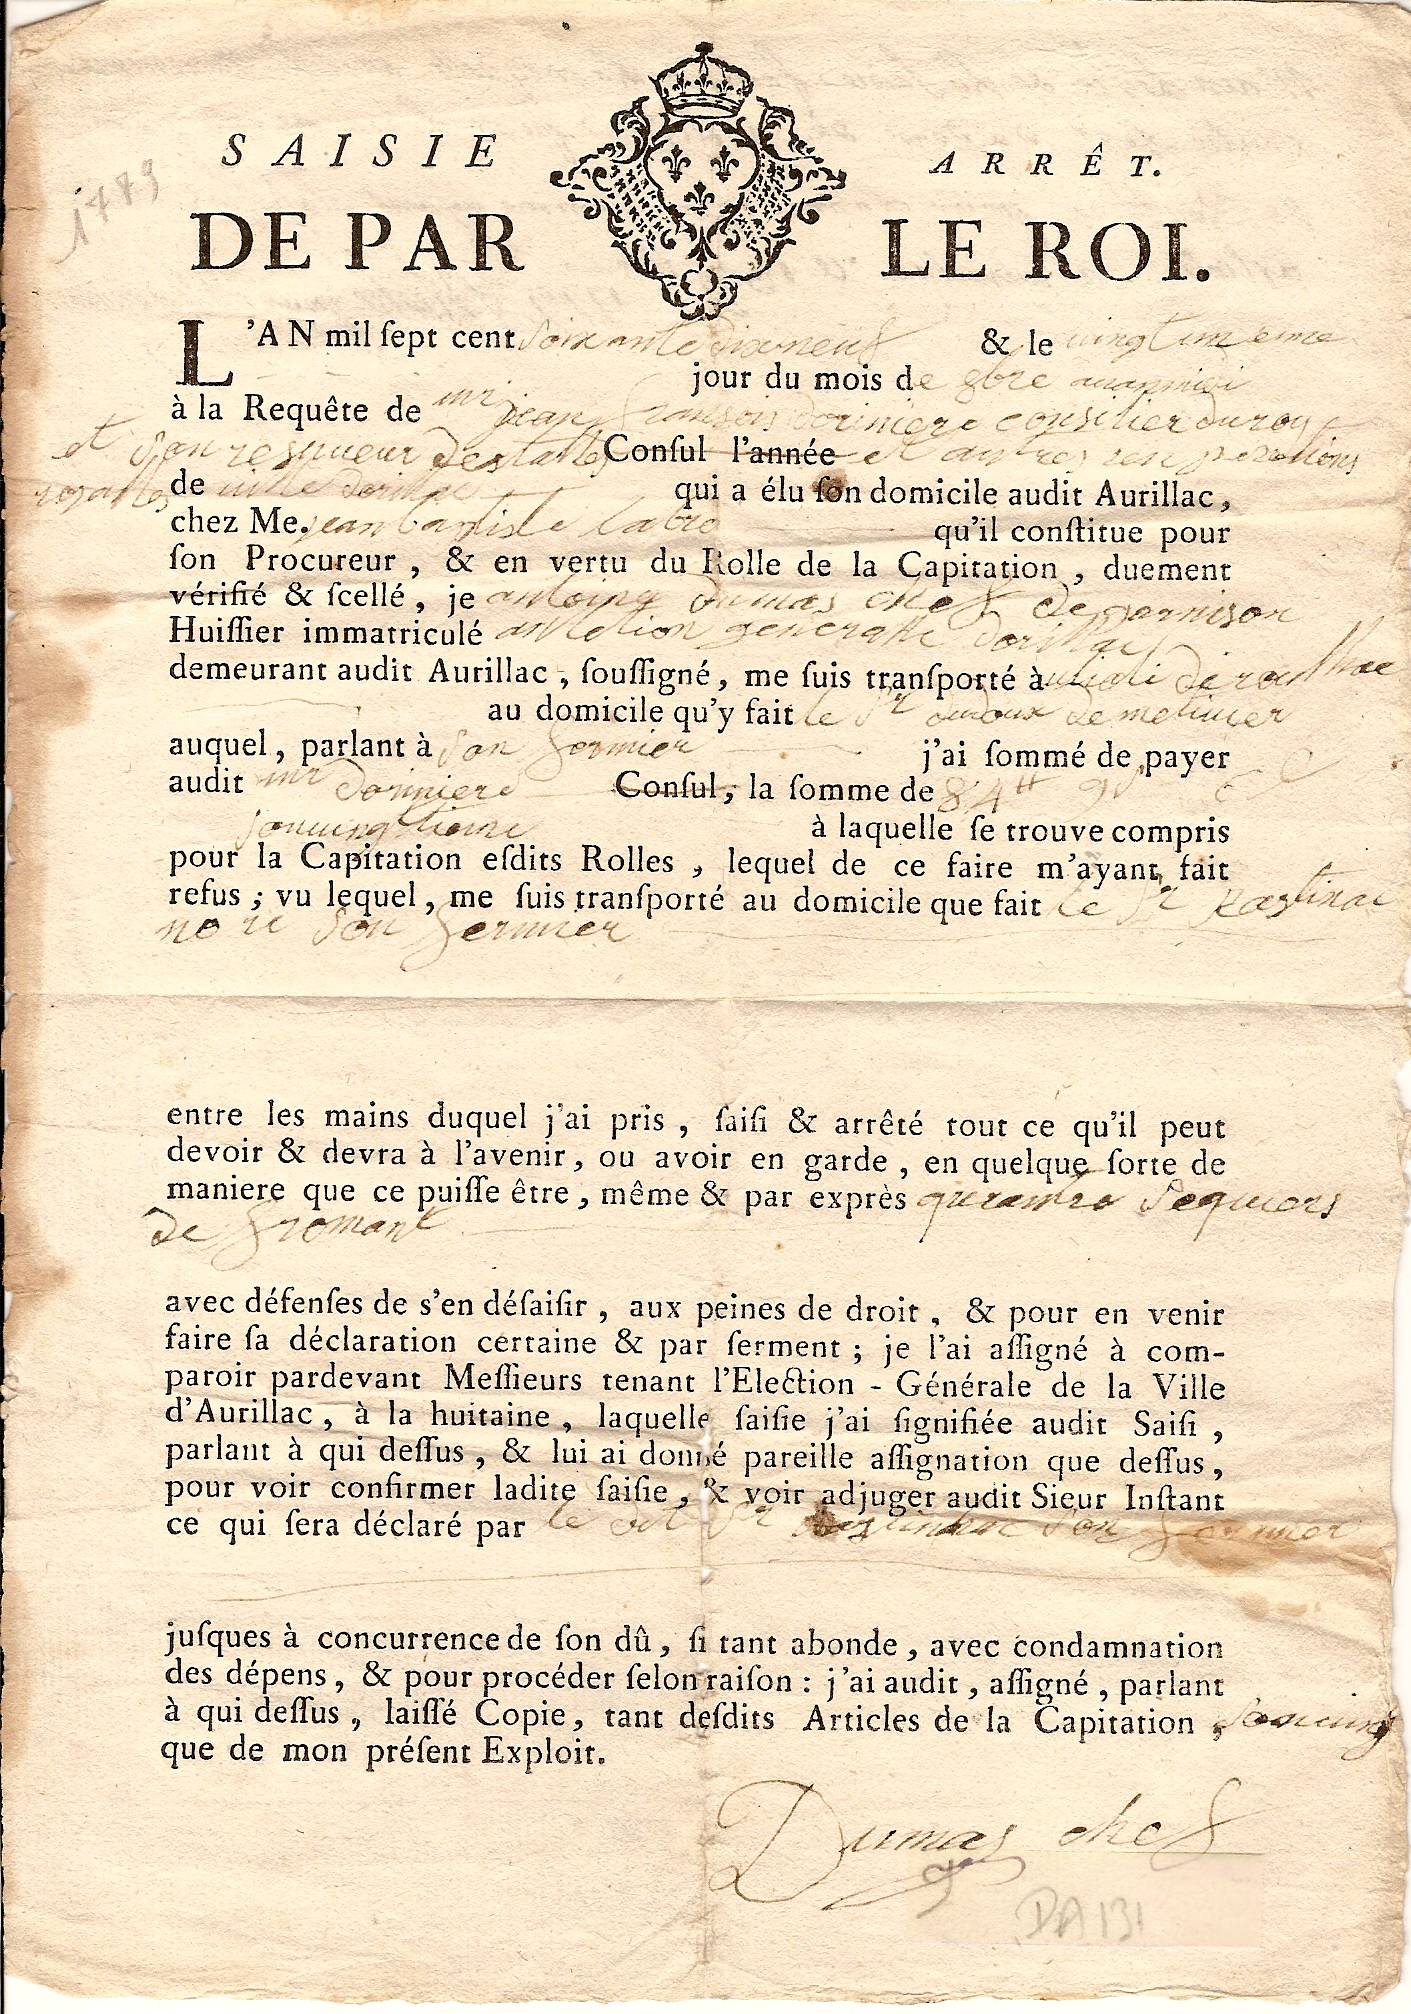 1779
SAISIE ARRÊT.
DE PAR LE ROI.
L'AN mil ſept cent soixante dixneuf & le vingtunieme
jour du mois de 8bre avant midi
à la Requête de mr jean fransois dorinière conseilier du roy
et son reseveur des tailles Conſul l'année et autres imposetions
royalles de ville dorillac qui a élu ſon domicile audit Aurillac,
chez Me. jean baptiste labro qu'il conſtitue pour
ſon Procureur, & en vertu du Rolle de la Capitation, duement
vérifié & ſcellé, je antoine dumas chef de garnison
Huiſſier immatriculé en leletion generalle dorillac
demeurant audit Aurillac, ſouſſigné, me ſuis tranſporté à
au domicile qu'y fait le Sr
auquel, parlant à son fermier j'ai ſommé de payer
audit mr dorinière Conſul, la ſomme de 84# 9s
à laquelle ſe trouve compris
pour la Capitation eſdits Rolles, lequel de ce faire m'ayant fait
refus; vu lequel, me ſuis tranſporté au domicile que fait le Sr Rastinac
son fermier
entre les mains duquel j'ai pris, ſaiſi & arrêté tout ce qu'il peut
devoir & devra à l'avenir, ou avoir en garde, en quelque ſorte de
maniere que ce puiſſe être, même & par exprès quarante sequiers
de fromant
avec défenſes de s'en déſaiſir, aux peines de droit, & pour en venir
faire ſa déclaration certaine & par ſerment; je l'ai aſſigné à com-
paroir pardevant Meſſieurs tenant l'Election - Générale de la Ville
d'Aurillac, à la huitaine, laquelle ſaiſie j'ai ſignifiée audit Saiſi,
parlant à qui deſſus, & lui ai donné pareille aſſignation que deſſus,
pour voir confirmer ladite ſaiſie, & voir adjuger audit Sieur Inſtant
ce qui ſera déclaré par le dit Sr Rastinhac son fermier
juſques à concurrence de ſon dû, ſi tant abonde, avec condamnation
des dépens, & pour procéder ſelon raiſon: j'ai audit, aſſigné, parlant
à qui deſſus, laiſſé Copie, tant deſdits Articles de la Capitation,
que de mon préſent Exploit.
Dumas chef
DA131